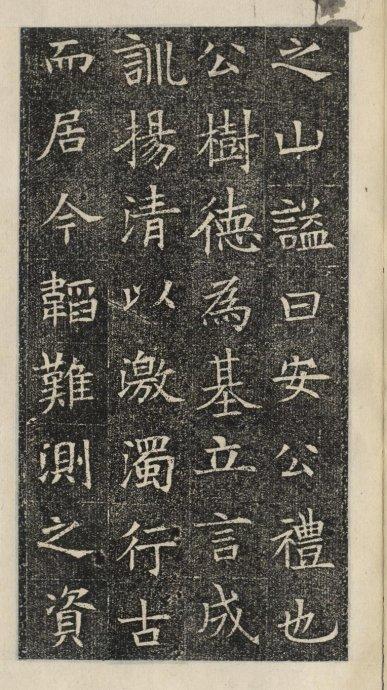 之山謚曰安公禮也
公樹德為基立言成
訓揚清以激濁行古
而居今韜難測之資